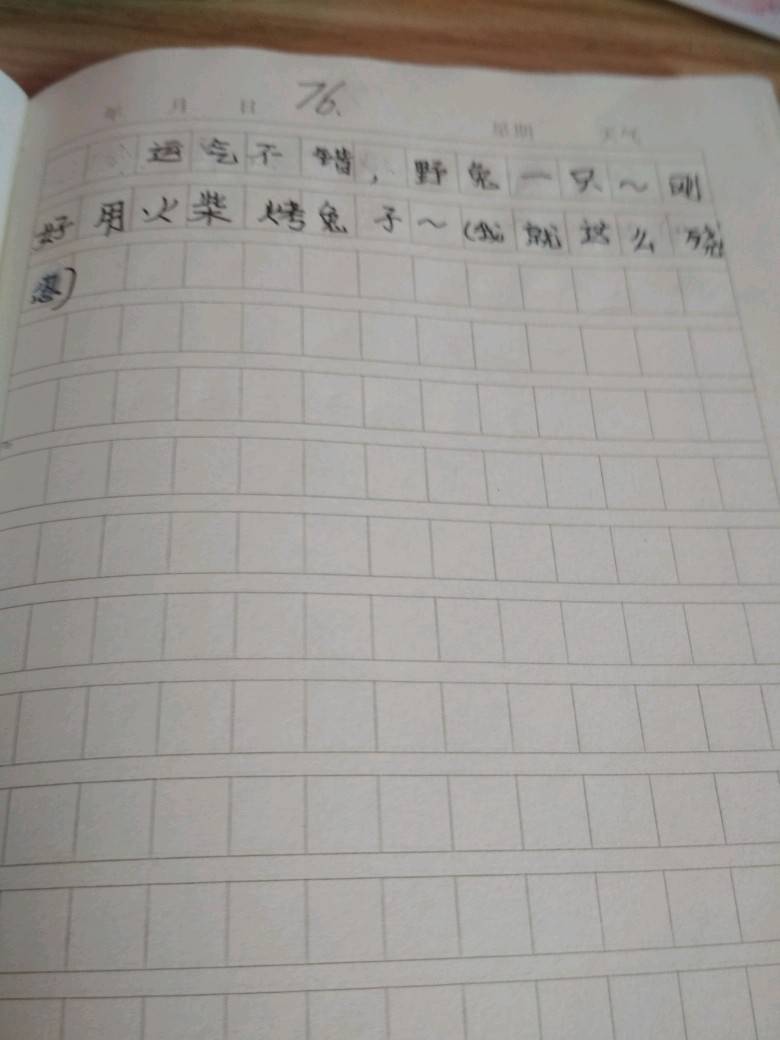 年 月 日 76.
星期 天气
运气不错，野兔一只～刚
好用火柴烤兔子～(我就这么
)